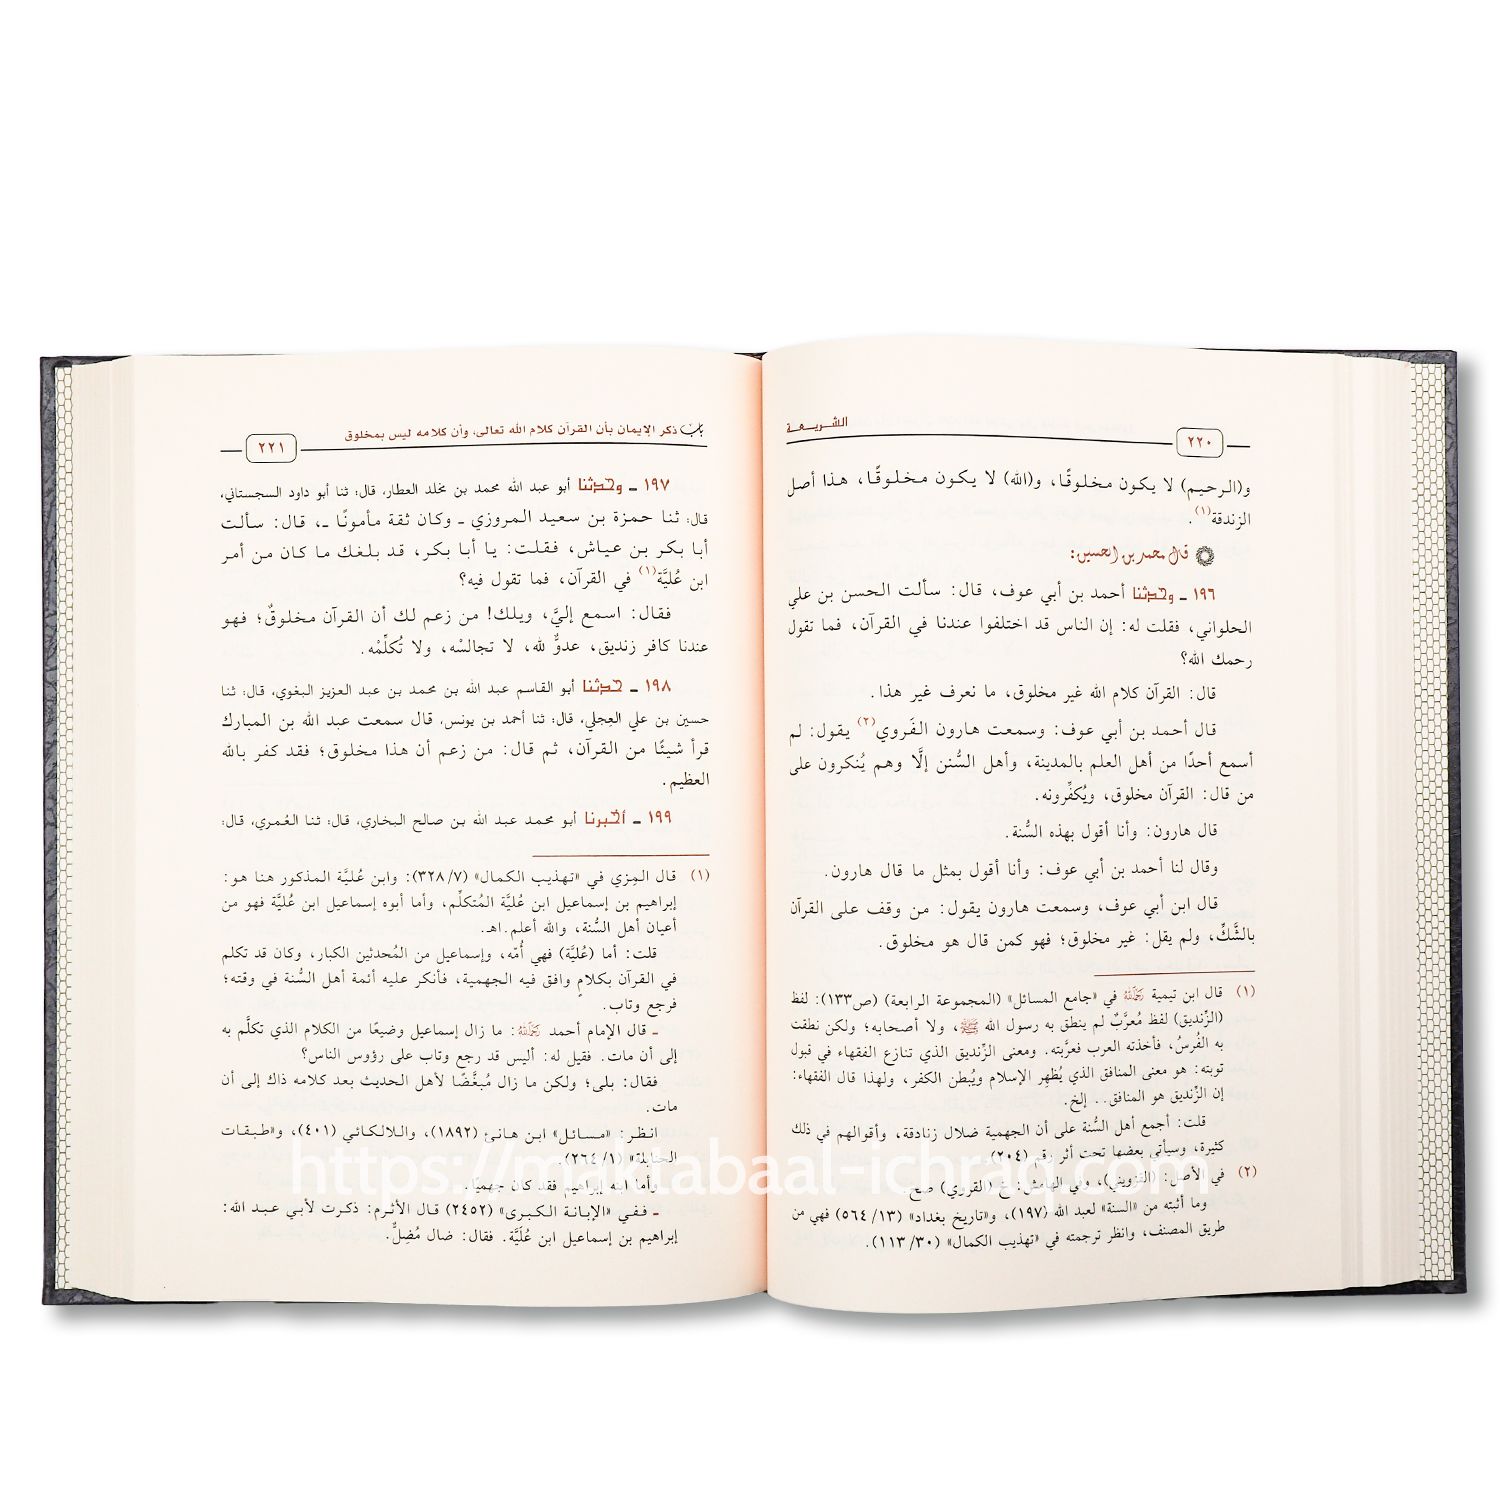 ٢٢٠
الشريعة
و(الرحيم) لا يكون مخلوقًا، و(الله) لا يكون مخلوقًا، هذا أصل
الزندقة(١).
قال محمد بن الحسين:
١٩٦ ـ وحدثنا أحمد بن أبي عوف، قال: سألت الحسن بن علي
الحلواني، فقلت له: إن الناس قد اختلفوا عندنا في القرآن، فما تقول
رحمك الله؟
قال: القرآن كلام الله غير مخلوق، ما نعرف غير هذا.
قال أحمد بن أبي عوف: وسمعت هارون الفَروي(٢) يقول: لم
أسمع أحدًا من أهل العلم بالمدينة، وأهل السُّنن إلَّا وهم يُنكرون على
من قال: القرآن مخلوق، ويُكفِّرونه.
قال هارون: وأنا أقول بهذه السُّنة.
وقال لنا أحمد بن أبي عوف: وأنا أقول بمثل ما قال هارون.
قال ابن أبي عوف، وسمعت هارون يقول: من وقف على القرآن
بالشَّكِّ، ولم يقل: غير مخلوق؛ فهو كمن قال هو مخلوق.
(١) قال ابن تيمية رَحِمَهُ اللهُ في «جامع المسائل» (المجموعة الرابعة) (ص١٣٣): لفظ
(الزِّنديق) لفظ مُعرَّبٌ لم ينطق به رسول الله ﷺ، ولا أصحابه؛ ولكن نطقت
به الفُرسُ، فأخذته العرب فعرَّبته. ومعنى الزِّنديق الذي تنازع الفقهاء في قبول
توبته: هو معنى المنافق الذي يُظهر الإسلام ويُبطن الكفر، ولهذا قال الفقهاء:
إن الزِّنديق هو المنافق.. إلخ.
قلت: أجمع أهل السُّنة على أن الجهمية ضلال زنادقة، وأقوالهم في ذلك
كثيرة، وسيأتي بعضها تحت أثر رقم (٢٠٤).
(٢) في الأصل: (القزويني)، وفي الهامش: خ (القروي) صح.
وما أثبته من «السنة» لعبد الله (١٩٧)، و«تاريخ بغداد» (١٣/ ٥٦٤) فهي من
طريق المصنف، وانظر ترجمته في «تهذيب الكمال» (٣٠/ ١١٣).
باب ذكر الإيمان بأن القرآن كلام الله تعالى، وأن كلامه ليس بمخلوق
٢٢١
١٩٧ ـ وحدثنا أبو عبد الله محمد بن مخلد العطار، قال: ثنا أبو داود السجستاني،
قال: ثنا حمزة بن سعيد المروزي ـ وكان ثقة مأمونًا ـ، قال: سألت
أبا بكر بن عياش، فقلت: يا أبا بكر، قد بلغك ما كان من أمر
ابن عُليَّة(١) في القرآن، فما تقول فيه؟
فقال: اسمع إليَّ، ويلك! من زعم لك أن القرآن مخلوقٌ؛ فهو
عندنا كافر زنديق، عدوٌّ لله، لا تجالسْه، ولا تُكلِّمْه.
١٩٨ ـ حدثنا أبو القاسم عبد الله بن محمد بن عبد العزيز البغوي، قال: ثنا
حسين بن علي العِجلي، قال: ثنا أحمد بن يونس، قال سمعت عبد الله بن المبارك
قرأ شيئًا من القرآن، ثم قال: من زعم أن هذا مخلوق؛ فقد كفر بالله
العظيم.
١٩٩ ـ أخبرنا أبو محمد عبد الله بن صالح البخاري، قال: ثنا العُمري، قال:
(١) قال المِزي في «تهذيب الكمال» (٧/ ٣٢٨): وابن عُليَّة المذكور هنا هو:
إبراهيم بن إسماعيل ابن عُليَّة المُتكلِّم، وأما أبوه إسماعيل ابن عُليَّة فهو من
أعيان أهل السُّنة، والله أعلم.اهـ.
قلت: أما (عُليَّة) فهي أُمّه، وإسماعيل من المُحدثين الكبار، وكان قد تكلم
في القرآن بكلامٍ وافق فيه الجهمية، فأنكر عليه أئمة أهل السُّنة في وقته؛
فرجع وتاب.
ـ قال الإمام أحمد رَحِمَهُ اللهُ: ما زال إسماعيل وضيعًا من الكلام الذي تكلَّم به
إلى أن مات. فقيل له: أليس قد رجع وتاب على رؤوس الناس؟
فقال: بلى؛ ولكن ما زال مُبغَّضًا لأهل الحديث بعد كلامه ذاك إلى أن
مات.
انظر: «مسائل» ابن هانئ (١٨٩٢)، واللالكائي (٤٠١)، و«طبقات
الحنابلة» (١/ ٢٦٤).
وأما ابنه إبراهيم فقد كان جهميًا.
ـ ففي «الإبانة الكبرى» (٢٤٥٢) قال الأثرم: ذكرت لأبي عبد الله:
إبراهيم بن إسماعيل ابن عُلَيَّة. فقال: ضال مُضِلٌّ.
https://maktabaal-ichraq.com